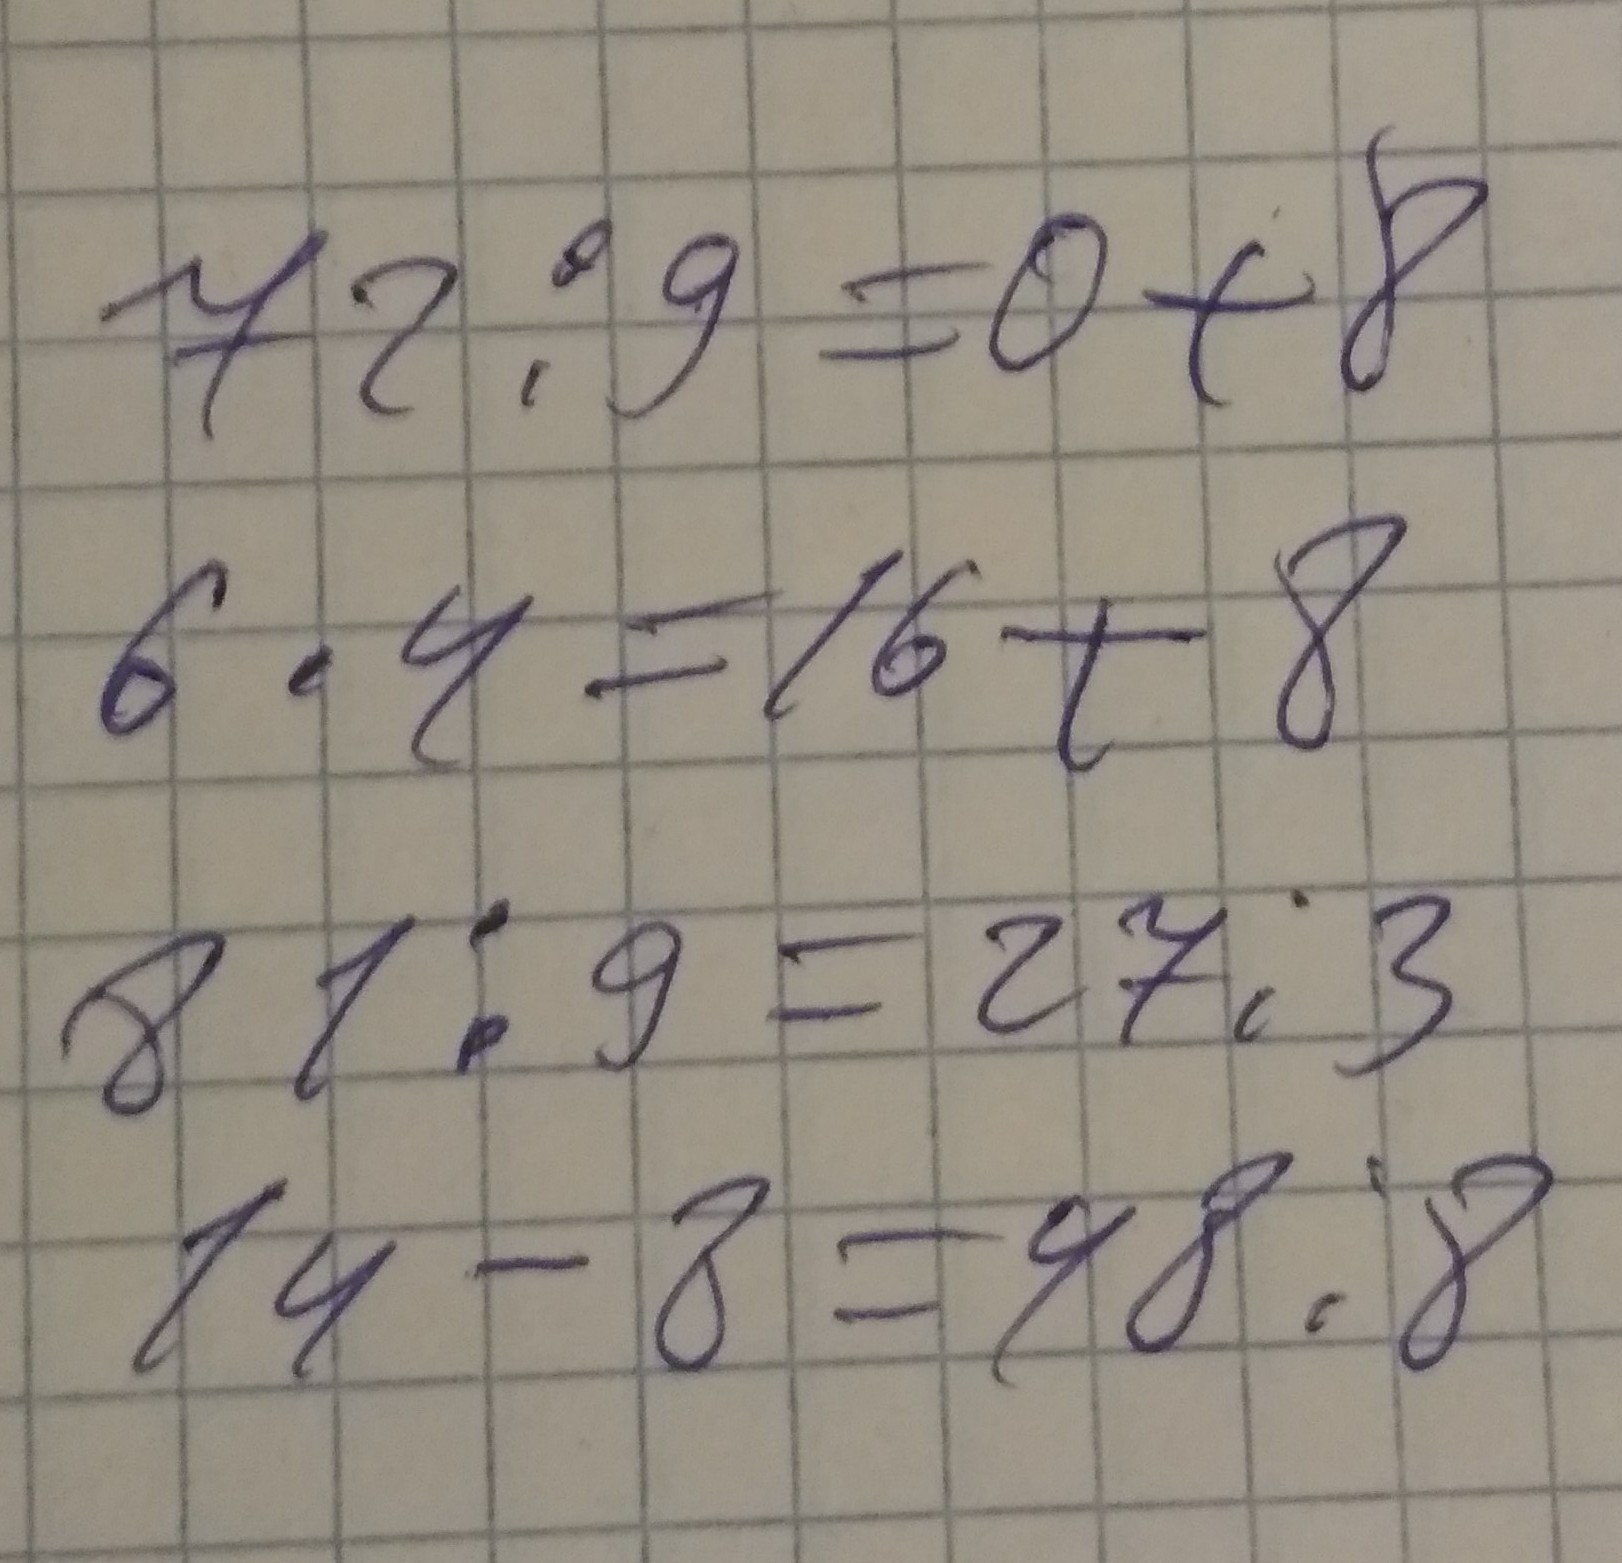 72:9=0+8
6·4=16+8
81:9=27:3
14-8=48:8